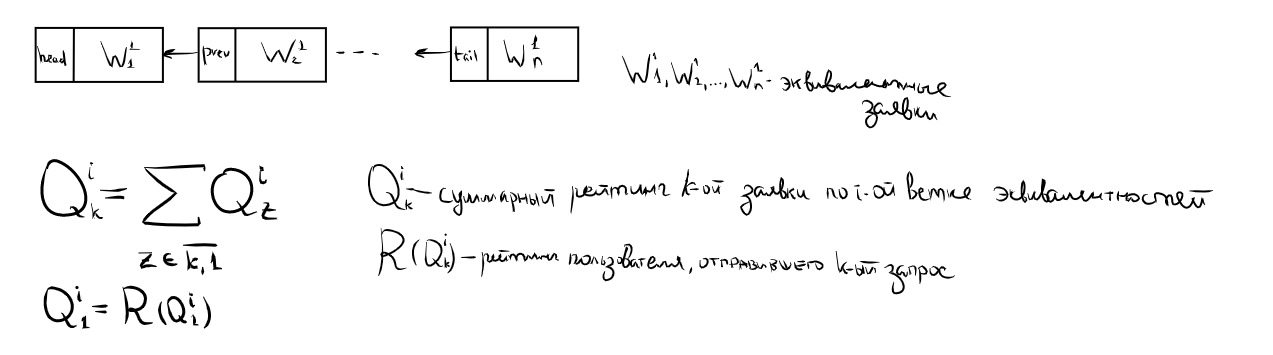 head W₁¹ prev W₂¹ --- tail Wₙ¹
W₁¹, W₂¹, ..., Wₙ¹ - эквивалентные
заявки
Qₖⁱ = ∑ Q_zⁱ
z ∈ k,1
Qₖⁱ — суммарный рейтинг k-ой заявки по i-ой ветке эквивалентностей
R(Qₖⁱ) — рейтинг пользователя, отправившего k-ый запрос
Q₁ⁱ = R(Q₁ⁱ)